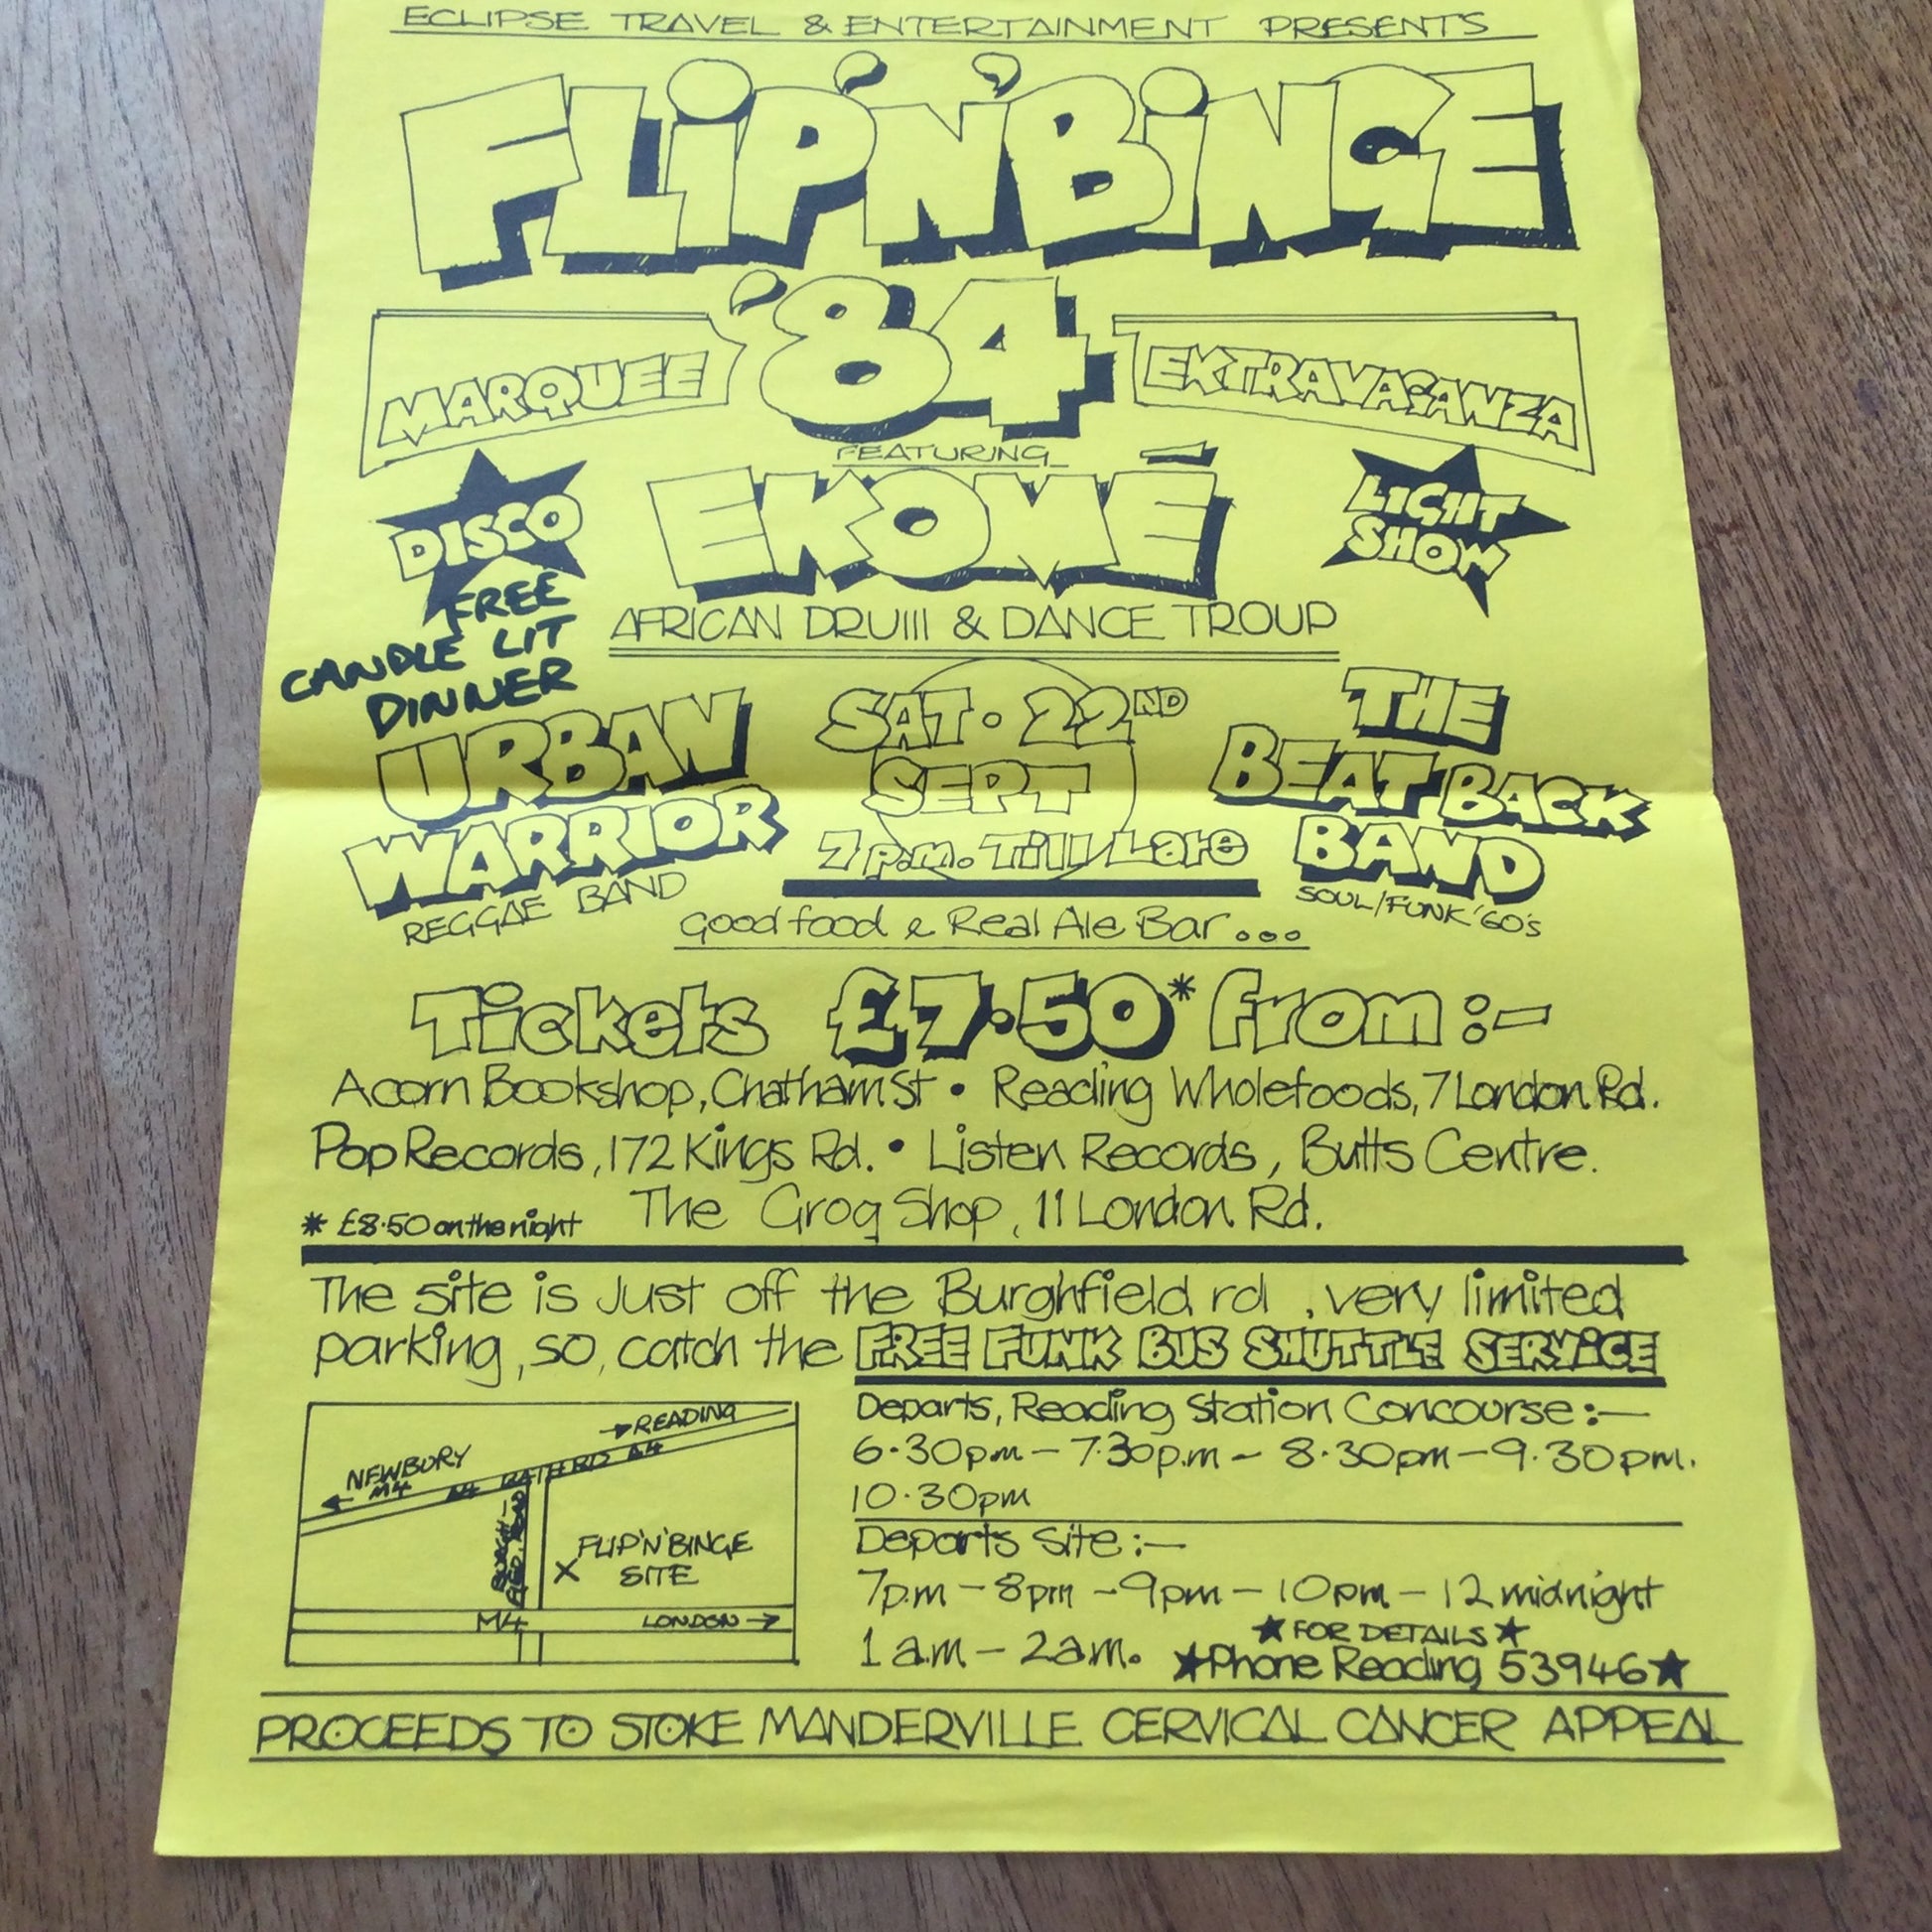 ECLIPSE TRAVEL & ENTERTAINMENT PRESENTS
FLIP'N'BINGE
'84
MARQUEE
EXTRAVAGANZA
FEATURING
DISCO
EKOMÉ
LIGHT
SHOW
AFRICAN DRUM & DANCE TROUP
FREE
CANDLE LIT
DINNER
URBAN
WARRIOR
REGGAE BAND
SAT. 22ND
SEPT
7 p.m. Till Late
THE
BEAT BACK
BAND
SOUL/FUNK '60's
Good food & Real Ale Bar...
Tickets £7.50* from :-
Acorn Bookshop, Chatham St • Reading Wholefoods, 7 London Rd.
Pop Records, 172 Kings Rd. • Listen Records, Butts Centre.
* £8.50 on the night The Grog Shop, 11 London Rd.
The site is Just off the Burghfield rd, very limited
parking, so, catch the FREE FUNK BUS SHUTTLE SERVICE
→READING
NEWBURY
← M4
A4 BATH RD A4
BURGH-
FIELD ROAD
FLIP'N'BINGE
X SITE
M4
LONDON →
Departs, Reading Station Concourse:—
6.30pm – 7.30p.m – 8.30pm – 9.30pm.
10.30pm
Departs Site:—
7p.m – 8pm – 9pm – 10pm – 12 midnight
1 a.m – 2am.
★ FOR DETAILS ★
★ Phone Reading 53946 ★
PROCEEDS TO STOKE MANDERVILLE CERVICAL CANCER APPEAL